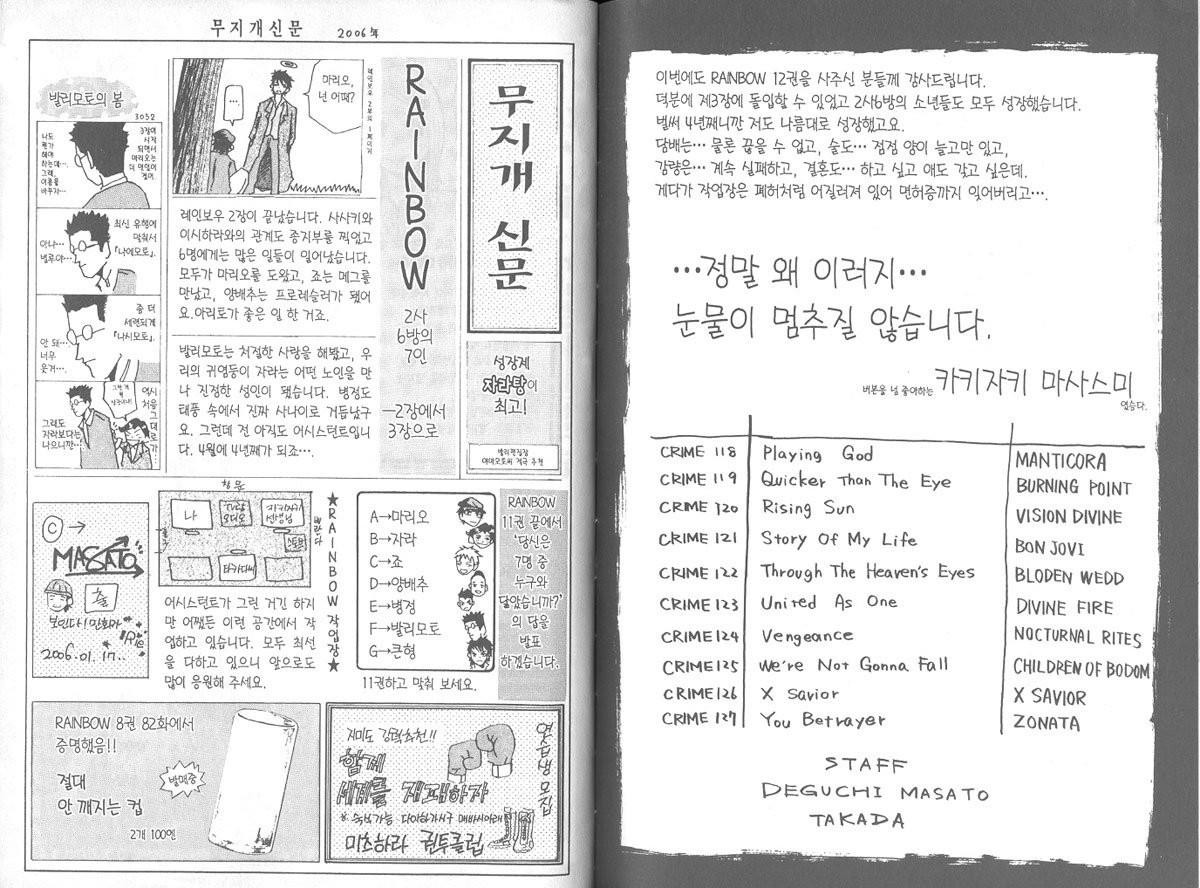 무지개신문 2006年
무지개 신문
RAINBOW
2사
6방의
7인
—2장에서
3장으로
성장제
자라탕이
최고!
마리오,
넌 어때?
…
레인보우 2장이 끝났습니다. 사사키와
이시하라와의 관계도 종지부를 찍었고
6명에게는 많은 일들이 일어났습니다.
모두가 마리오를 도왔고, 죠는 메그를
만났고, 양배추는 프로레슬러가 됐어
요.아리토가 좋은 일 한 거죠.
발리모토는 처절한 사랑을 해봤고, 우
리의 귀염둥이 자라는 어떤 노인을 만
나 진정한 성인이 됐습니다. 병정도
태풍 속에서 진짜 사나이로 거듭났구
요. 그런데 전 아직도 어시스턴트입니
다. 4월에 4년째가 되죠….
발리모토의 봄
3052
3장이
시작
되면서
마리오는
나도
뭔가
해야
하는데…
그래,
이름을
바꾸자…
최신 유행에
맞춰서
「나에모토」.
아냐…
별루야…
좀 더
세련되게
「나시모토」.
안 돼…
너무
웃겨….
역시
처음
그대로가
그래도
자라보다는
나으니까…
RAINBOW
11권 끝에서
'당신은
7명 중
누구와
닮았습니까?'
의 답을
발표
하겠습니다.
A→마리오
B→자라
C→죠
D→양배추
E→병정
F→발리모토
G→큰형
11권하고 맞춰 보세요.
★RAINBOW 작업장★
창문
나
TV랑
오디오
카키자키
선생님
스토브
타카다씨
어시스턴트가 그린 거긴 하지
만 어쨌든 이런 공간에서 작
업하고 있습니다. 모두 최선
을 다하고 있으니 앞으로도
많이 응원해 주세요.
ⓒ→
MASATO
출
2006.01.17..
RAINBOW 8권 82화에서
증명했음!!
절대
안 깨지는 컵
발매중
2개 100엔
지미도 강력추천!!
함께
세계를 제패하자
미츠하라 권투클럽
연습생 모집
이번에도 RAINBOW 12권을 사주신 분들께 감사드립니다.
덕분에 제3장에 돌입할 수 있었고 2사6방의 소년들도 모두 성장했습니다.
벌써 4년째니깐 저도 나름대로 성장했고요.
담배는… 물론 끊을 수 없고, 술도… 점점 양이 늘고만 있고,
감량은… 계속 실패하고, 결혼도… 하고 싶고 애도 갖고 싶은데.
게다가 작업장은 폐허처럼 어질러져 있어 면허증까지 잊어버리고….
…정말 왜 이러지…
눈물이 멈추질 않습니다.
버본을 넘 좋아하는 카키자키 마사스미
였습니다.
CRIME 118 Playing God MANTICORA
CRIME 119 Quicker Than The Eye BURNING POINT
CRIME 120 Rising Sun VISION DIVINE
CRIME 121 Story Of My Life BON JOVI
CRIME 122 Through The Heaven's Eyes BLODEN WEDD
CRIME 123 United As One DIVINE FIRE
CRIME 124 Vengeance NOCTURNAL RITES
CRIME 125 We're Not Gonna Fall CHILDREN OF BODOM
CRIME 126 X Savior X SAVIOR
CRIME 127 You Betrayer ZONATA
STAFF
DEGUCHI MASATO
TAKADA